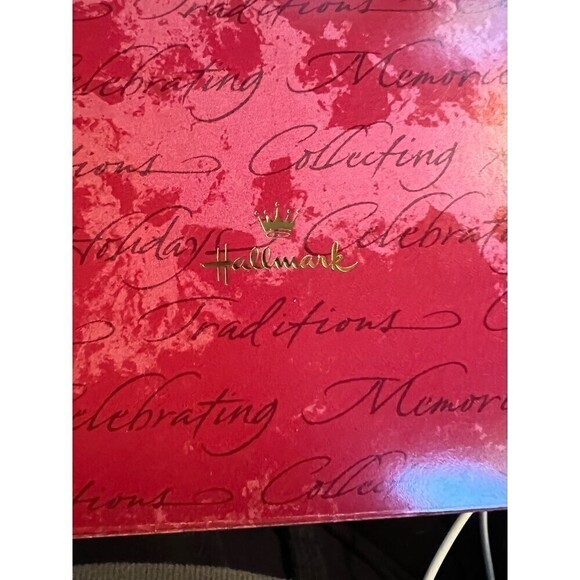 Traditions
Celebrating Memories
Collecting
Holidays Celebrat
Hallmark
Traditions C
elebrating Memori
tions Collect